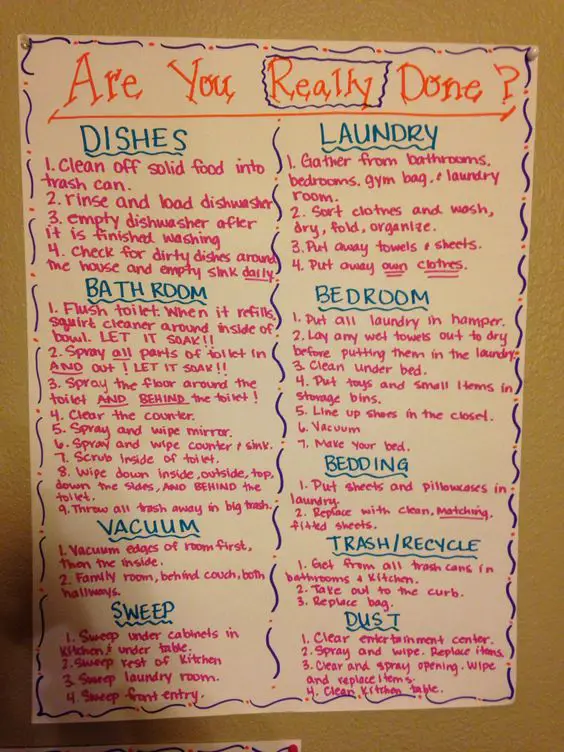 Are You Really Done?
DISHES
1. Clean off solid food into
trash can.
2. rinse and load dishwasher
3. empty dishwasher after
it is finished washing
4. Check for dirty dishes around
the house and empty sink daily.
BATHROOM
1. Flush toilet. When it refills,
squirt cleaner around inside of
bowl. LET IT SOAK!!
2. Spray all parts of toilet in
AND out! LET IT SOAK!!
3. Spray the floor around the
toilet AND BEHIND the toilet!
4. Clear the counter.
5. Spray and wipe mirror.
6. Spray and wipe counter & sink.
7. Scrub inside of toilet.
8. Wipe down inside, outside, top,
down the sides, AND BEHIND the
toilet.
9. Throw all trash away in big trash.
VACUUM
1. Vacuum edges of room first,
then the inside.
2. Family room, behind couch, both
hallways.
SWEEP
1. Sweep under cabinets in
Kitchen & under table.
2. Sweep rest of Kitchen
3. Sweep laundry room.
4. Sweep front entry.
LAUNDRY
1. Gather from bathrooms,
bedrooms, gym bag, & laundry
room.
2. Sort clothes and wash,
dry, fold, organize.
3. Put away towels & sheets.
4. Put away own clothes.
BEDROOM
1. Put all laundry in hamper.
2. Lay any wet towels out to dry
before putting them in the laundry.
3. Clean under bed.
4. Put toys and small items in
storage bins.
5. Line up shoes in the closet.
6. Vacuum
7. Make your bed.
BEDDING
1. Put sheets and pillowcases in
laundry.
2. Replace with clean, matching,
fitted sheets.
TRASH/RECYCLE
1. Get from all trash cans in
bathrooms & Kitchen.
2. Take out to the curb.
3. Replace bag.
DUST
1. Clear entertainment center.
2. Spray and wipe. Replace items.
3. Clear and spray opening. Wipe
and replace items.
4. Clean Kitchen table.